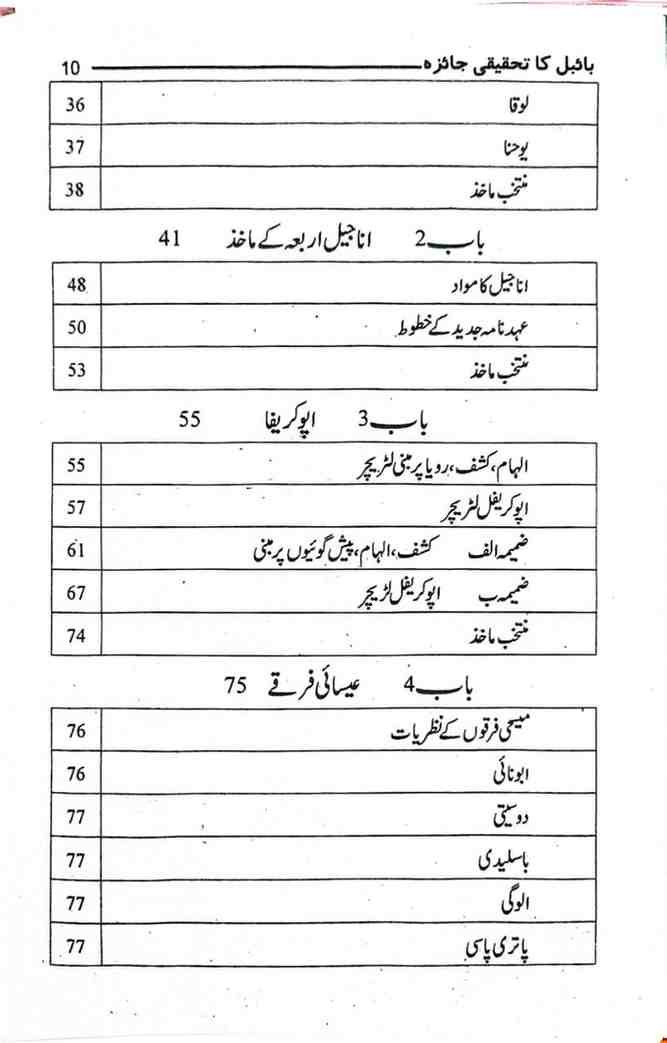 بائبل کا تحقیقی جائزہ 10
لوقا 36
یوحنا 37
منتخب ماخذ 38
باب 2 اناجیل اربعہ کے ماخذ 41
اناجیل کا مواد 48
عہد نامہ جدید کے خطوط 50
منتخب ماخذ 53
باب 3 اپوکریفا 55
الہام، کشف، رویا پر مبنی لٹریچر 55
اپوکریفل لٹریچر 57
ضمیمہ الف کشف، الہام، پیش گوئیوں پر مبنی 61
ضمیمہ ب اپوکریفل لڑیچر 67
منتخب ماخذ 74
باب 4 عیسائی فرقے 75
مسیحی فرقوں کے نظریات 76
ابونائی 76
دوسیتی 77
باسلیدی 77
الوگی 77
پاتری پاسی 77